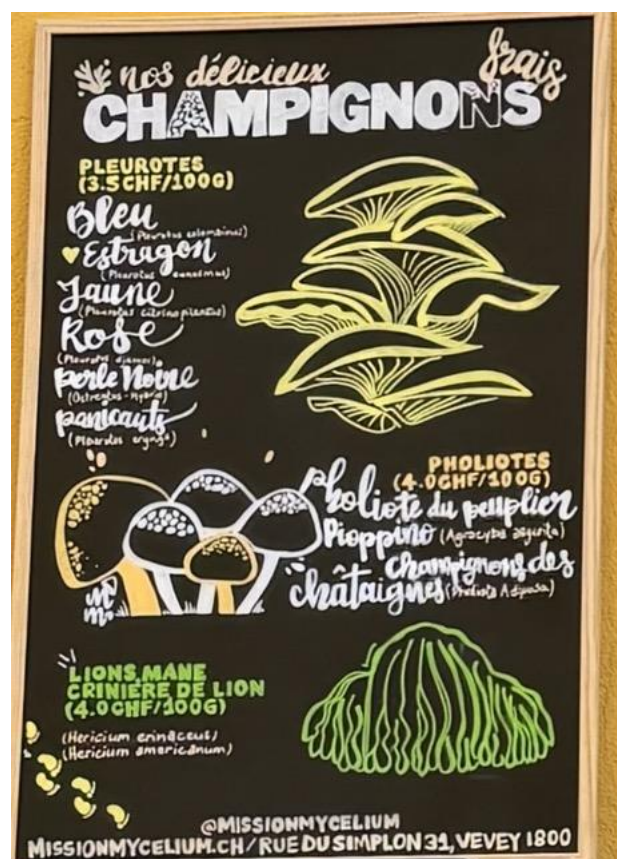 nos délicieux frais
CHAMPIGNONS
PLEUROTES
(3.5 CHF/100G)
Bleu
(Pleurotus colombinus)
Estragon
(Pleurotus euosmus)
Jaune
(Pleurotus citrinopileatus)
Rose
(Pleurotus djamor)
perle Noire
(Ostreatus-Hybrid)
panicauts
(Pleurotus eryngii)
PHOLIOTES
(4.0CHF/100G)
Pholiote du peuplier
Pioppino (Agrocybe aegerita)
Champignons des
châtaignes (Pholiota Adiposa)
LIONS MANE
CRINIÈRE DE LION
(4.0CHF/100G)
(Hericium erinaceus)
(Hericium americanum)
@MISSIONMYCELIUM
MISSIONMYCELIUM.CH/RUE DU SIMPLON 31, VEVEY 1800